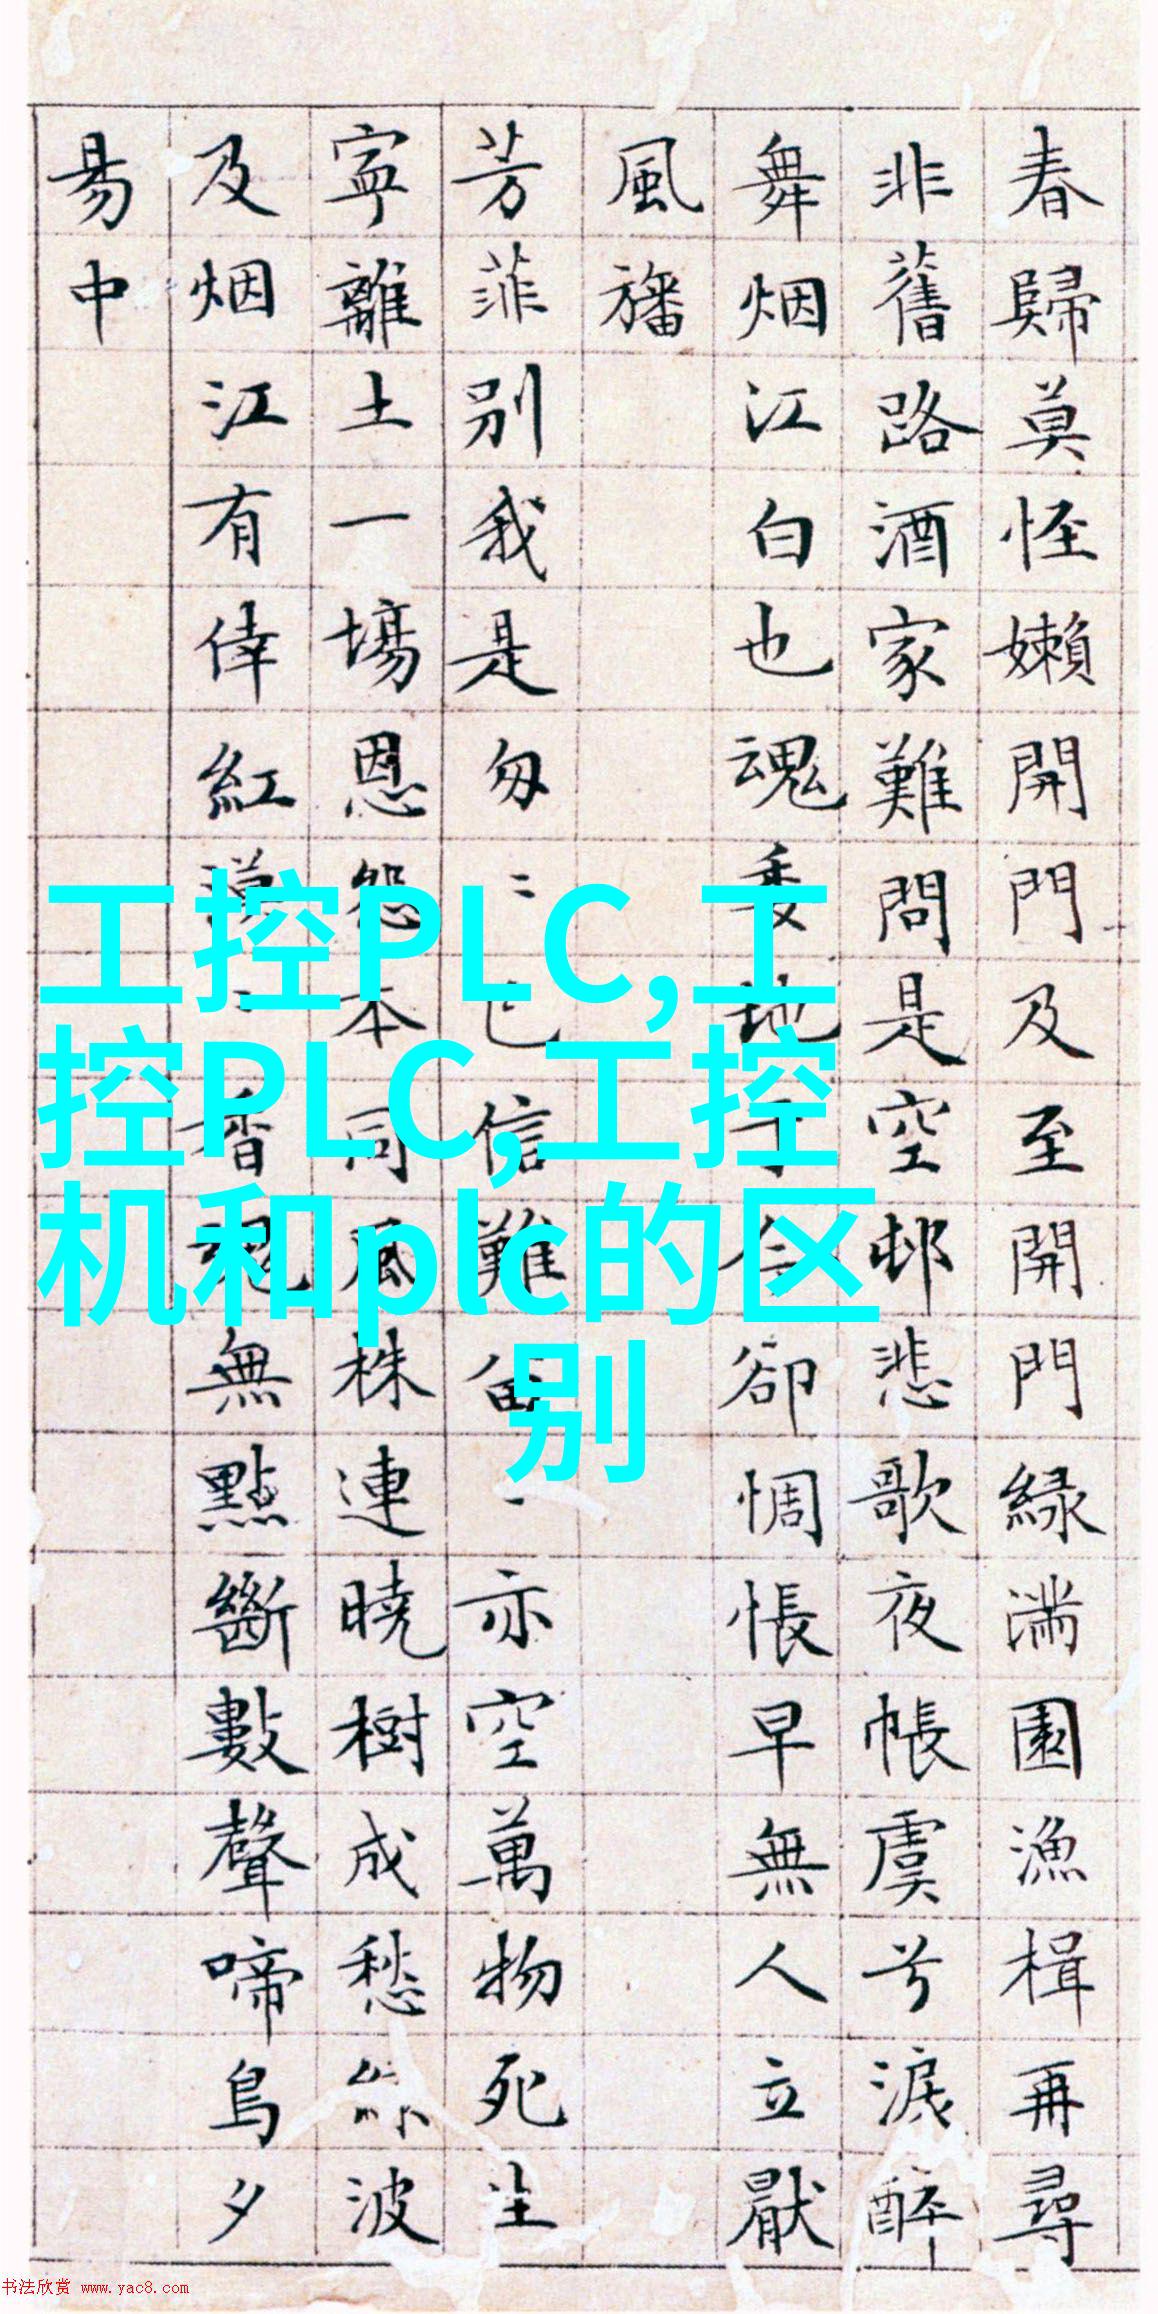 工控PLC,工
控PLC,工控
机和plc的区
别
春歸莫怪嬾開門及至開門緑滿園漁楫再尋
非舊路酒家難問是空邨悲歌夜帳虞兮淚醉
舞烟江白也魂委地于今卻惆悵早無人立厭
風旛
芳菲別我是匆〻已信難留〻亦空萬物死生
寧離土一場恩怨本同風株連曉樹成愁緒波
及烟江有倖紅〻香魂無點斷數聲啼鳥夕
昜中
书法欣赏 www.yac8.com